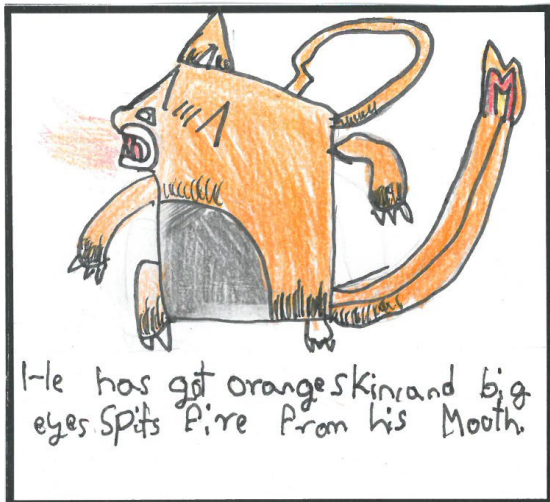 He has got orange skin, and big
eyes. Spits fire from his Mouth.